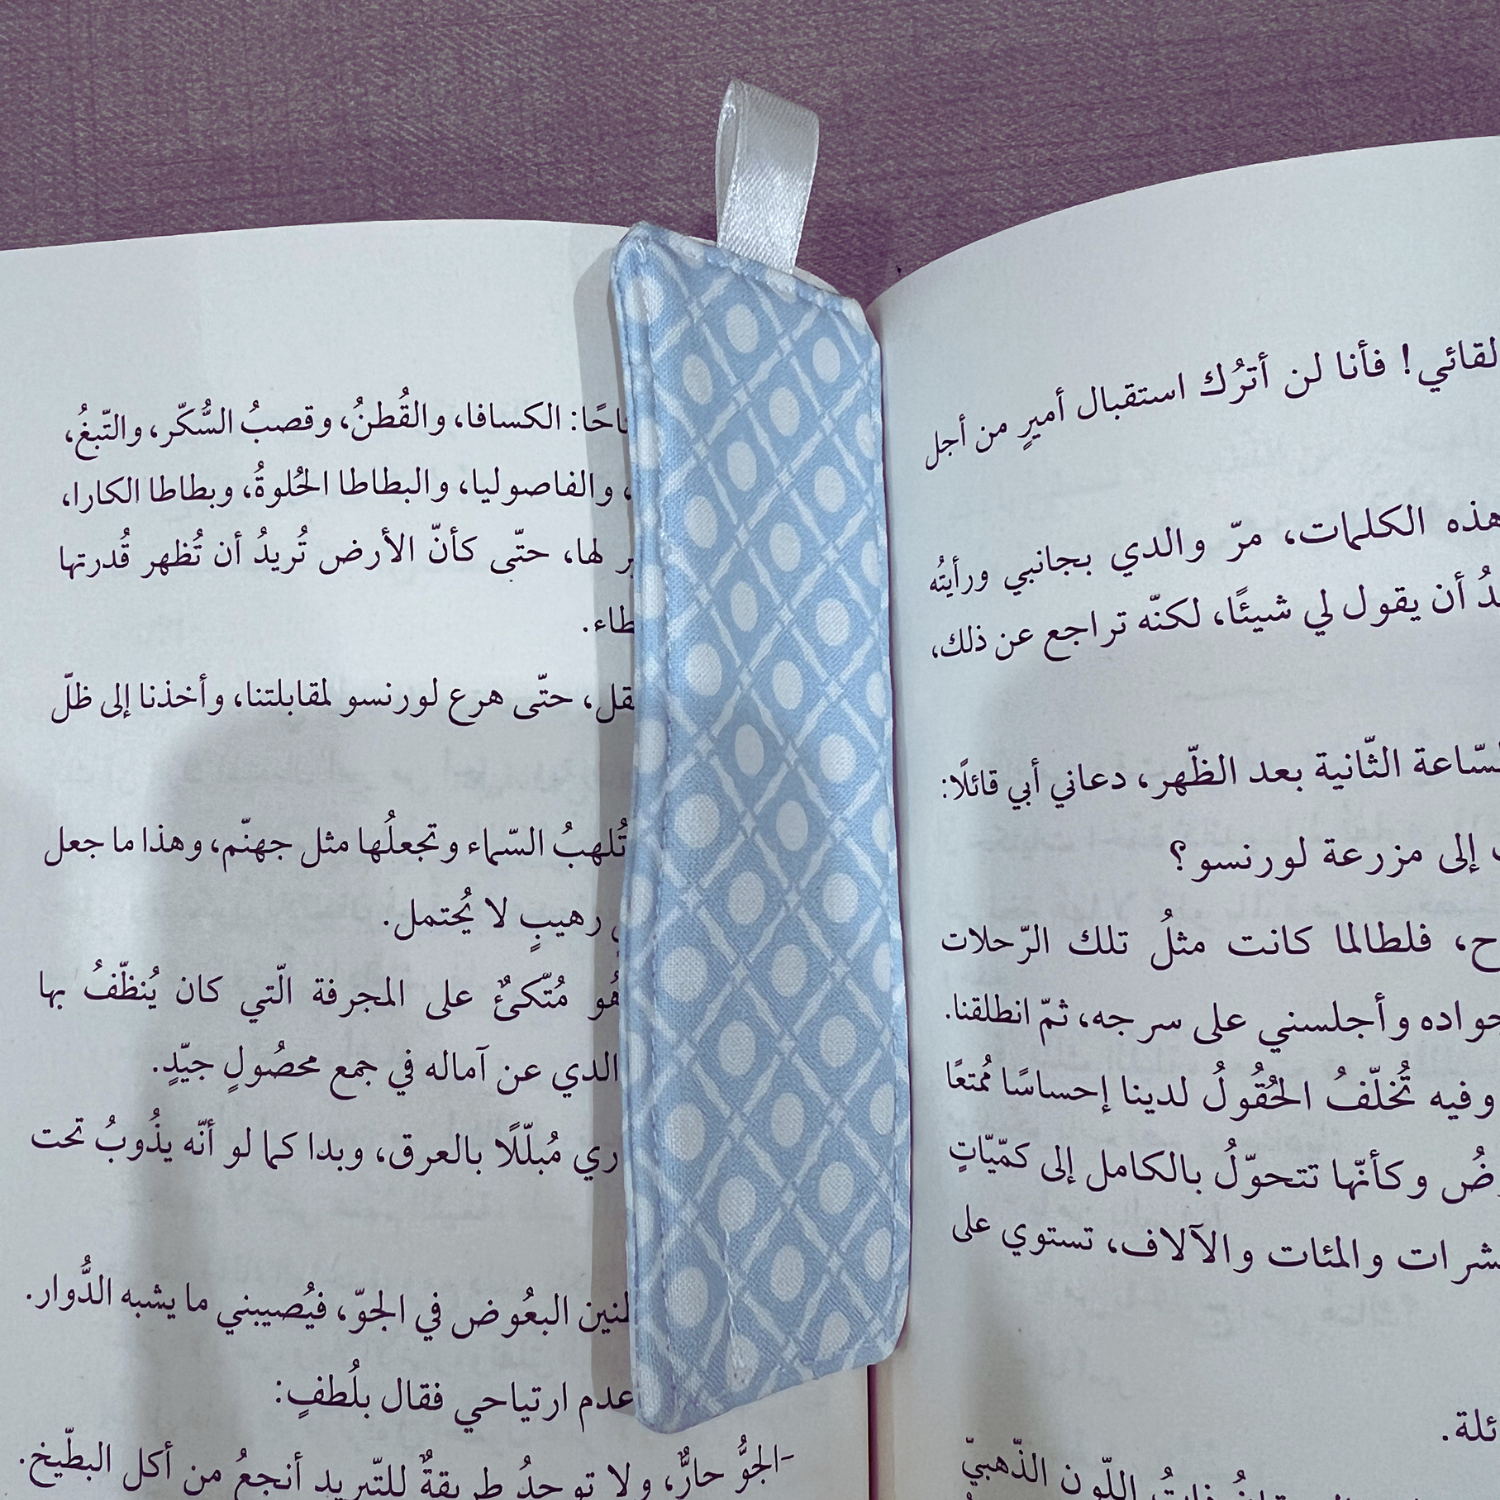 لقائي! فأنا لن أتركُ استقبال أميرٍ من أجل
هذه الكلمات، مرّ والدي بجانبي ورأيتُه
أن يقول لي شيئًا، لكنّه تراجع عن ذلك،
السّاعة الثّانية بعد الظّهر، دعاني أبي قائلًا:
إلى مزرعة لورنسو؟
فلطالما كانت مثلُ تلك الرّحلات
جواده وأجلسني على سرجه، ثمّ انطلقنا.
وفيه تُخلّفُ الحُقُولُ لدينا إحساسًا مُمتعًا
وكأنّها تتحوّلُ بالكامل إلى كمّيّاتٍ
شرات والمئات والآلاف، تستوي على
ئلة.
اللّون الذّهبيّ
الكسافا، والقُطنُ، وقصبُ السُّكّر، والتّبغُ،
والفاصوليا، والبطاطا الحُلوةُ، وبطاطا الكارا،
لها، حتّى كأنّ الأرض تُريدُ أن تُظهر قُدرتها
طاء.
قل، حتّى هرع لورنسو لمقابلتنا، وأخذنا إلى ظلّ
تُلهبُ السّماء وتجعلُها مثل جهنّم، وهذا ما جعل
رهيبٍ لا يُحتمل.
هُو مُتّكئٌ على المجرفة الّتي كان يُنظّفُ بها
الدي عن آماله في جمع محصُولٍ جيّدٍ.
ري مُبلّلًا بالعرق، وبدا كما لو أنّه يذُوبُ تحت
طنين البعُوض في الجوّ، فيُصيبني ما يشبه الدُّوار.
عدم ارتياحي فقال بلُطفٍ:
-الجوُّ حارٌّ، ولا توجدُ طريقةٌ للتّبريد أنجعُ من أكل البطّيخ.